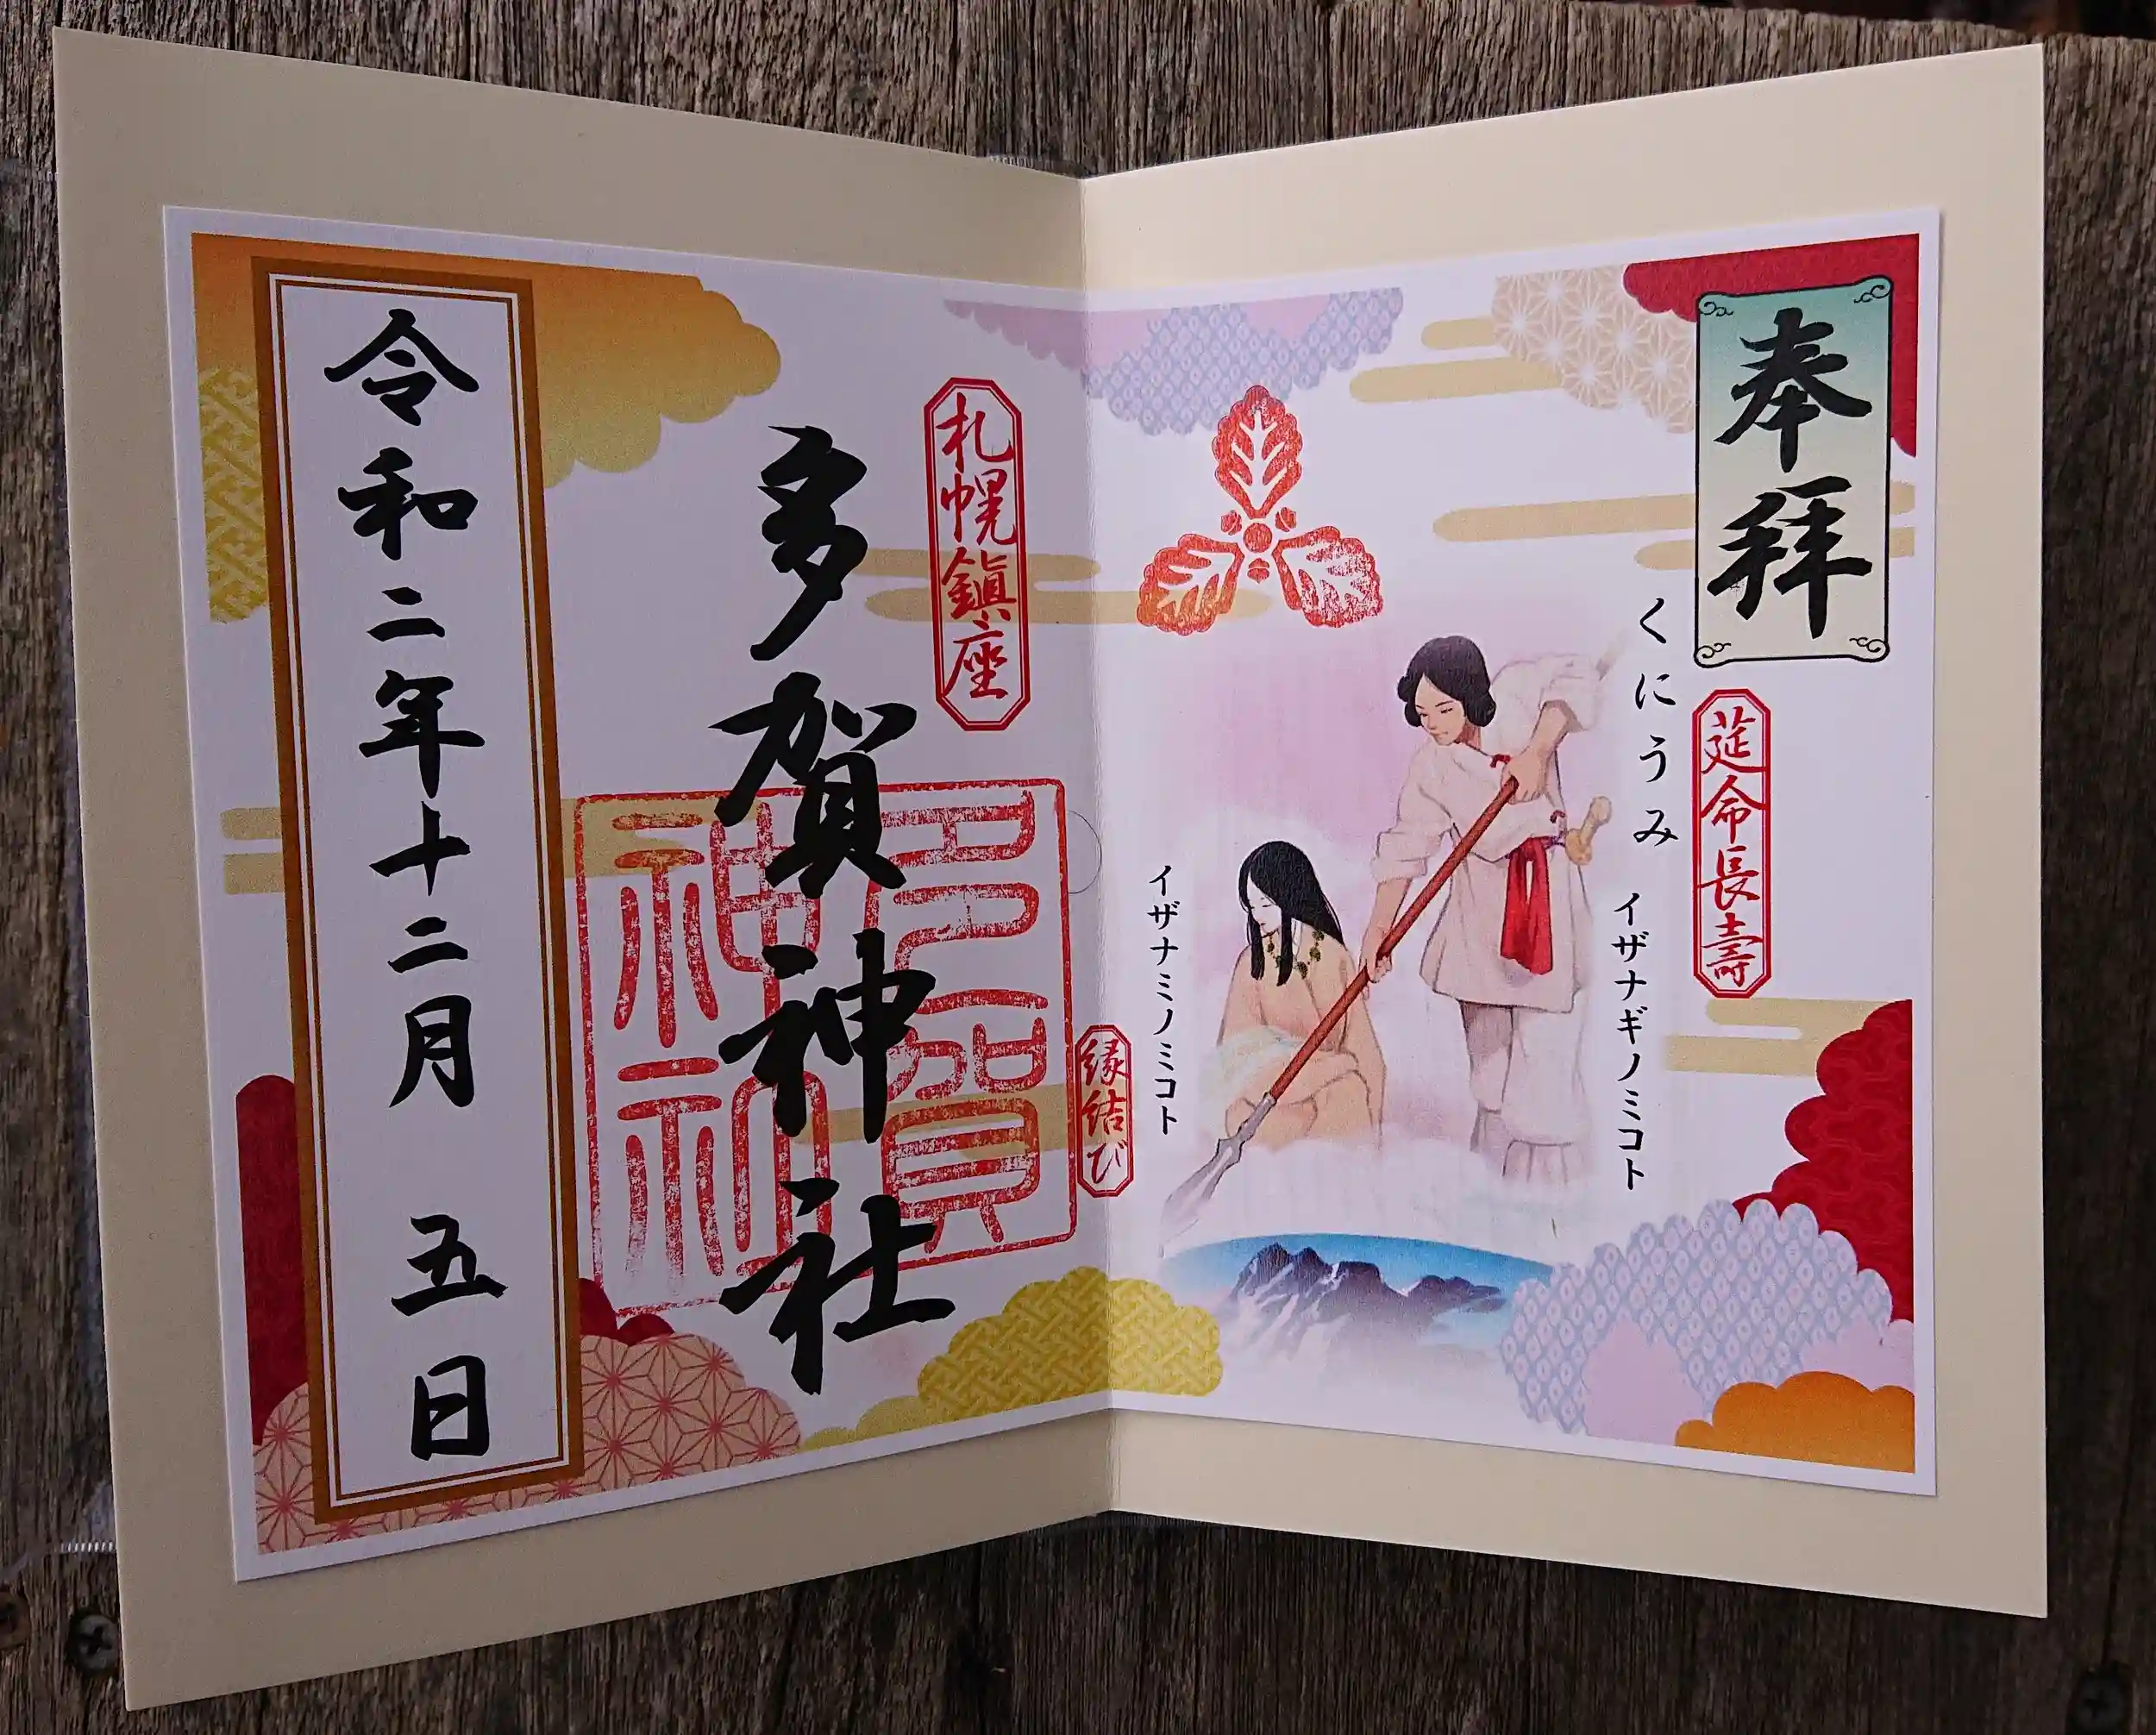 奉拝
延命長壽
くにうみ
イザナギノミコト
イザナミノミコト
縁結び
札幌鎮座
多賀神社
多賀
神社
令和二年十二月 五日